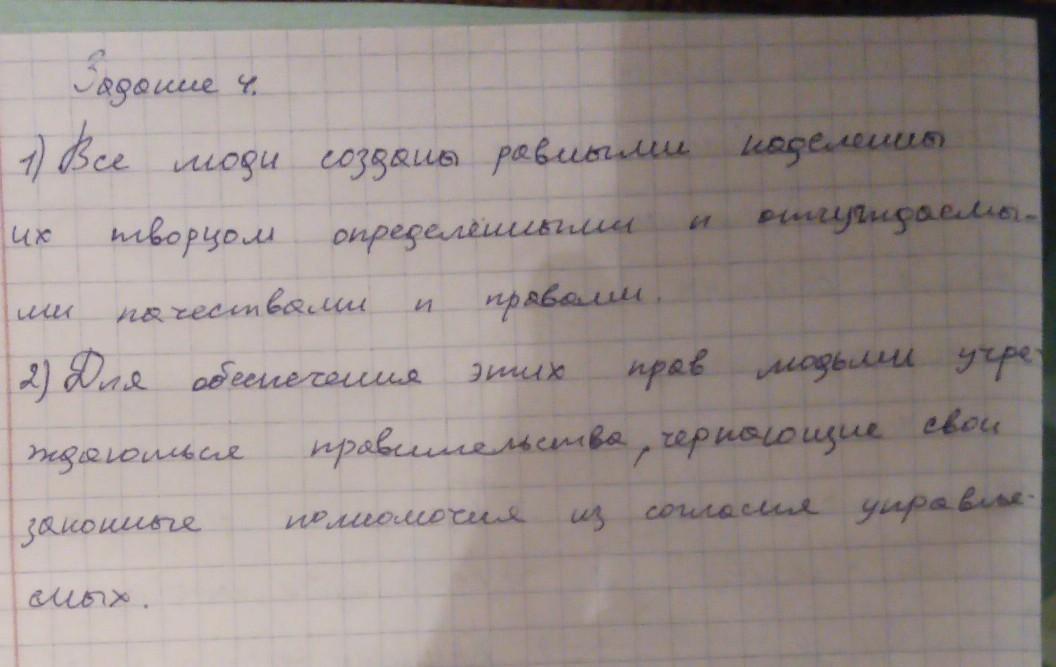 Задание 4.
1) Все люди созданы равными наделенны
их творцом определёнными и отчуждаемы-
ми качествами и правами.
2) Для обеспечения этих прав людьми учре-
ждаються правительства, черпающие свои
законные полномочия из согласия управляе-
емых.